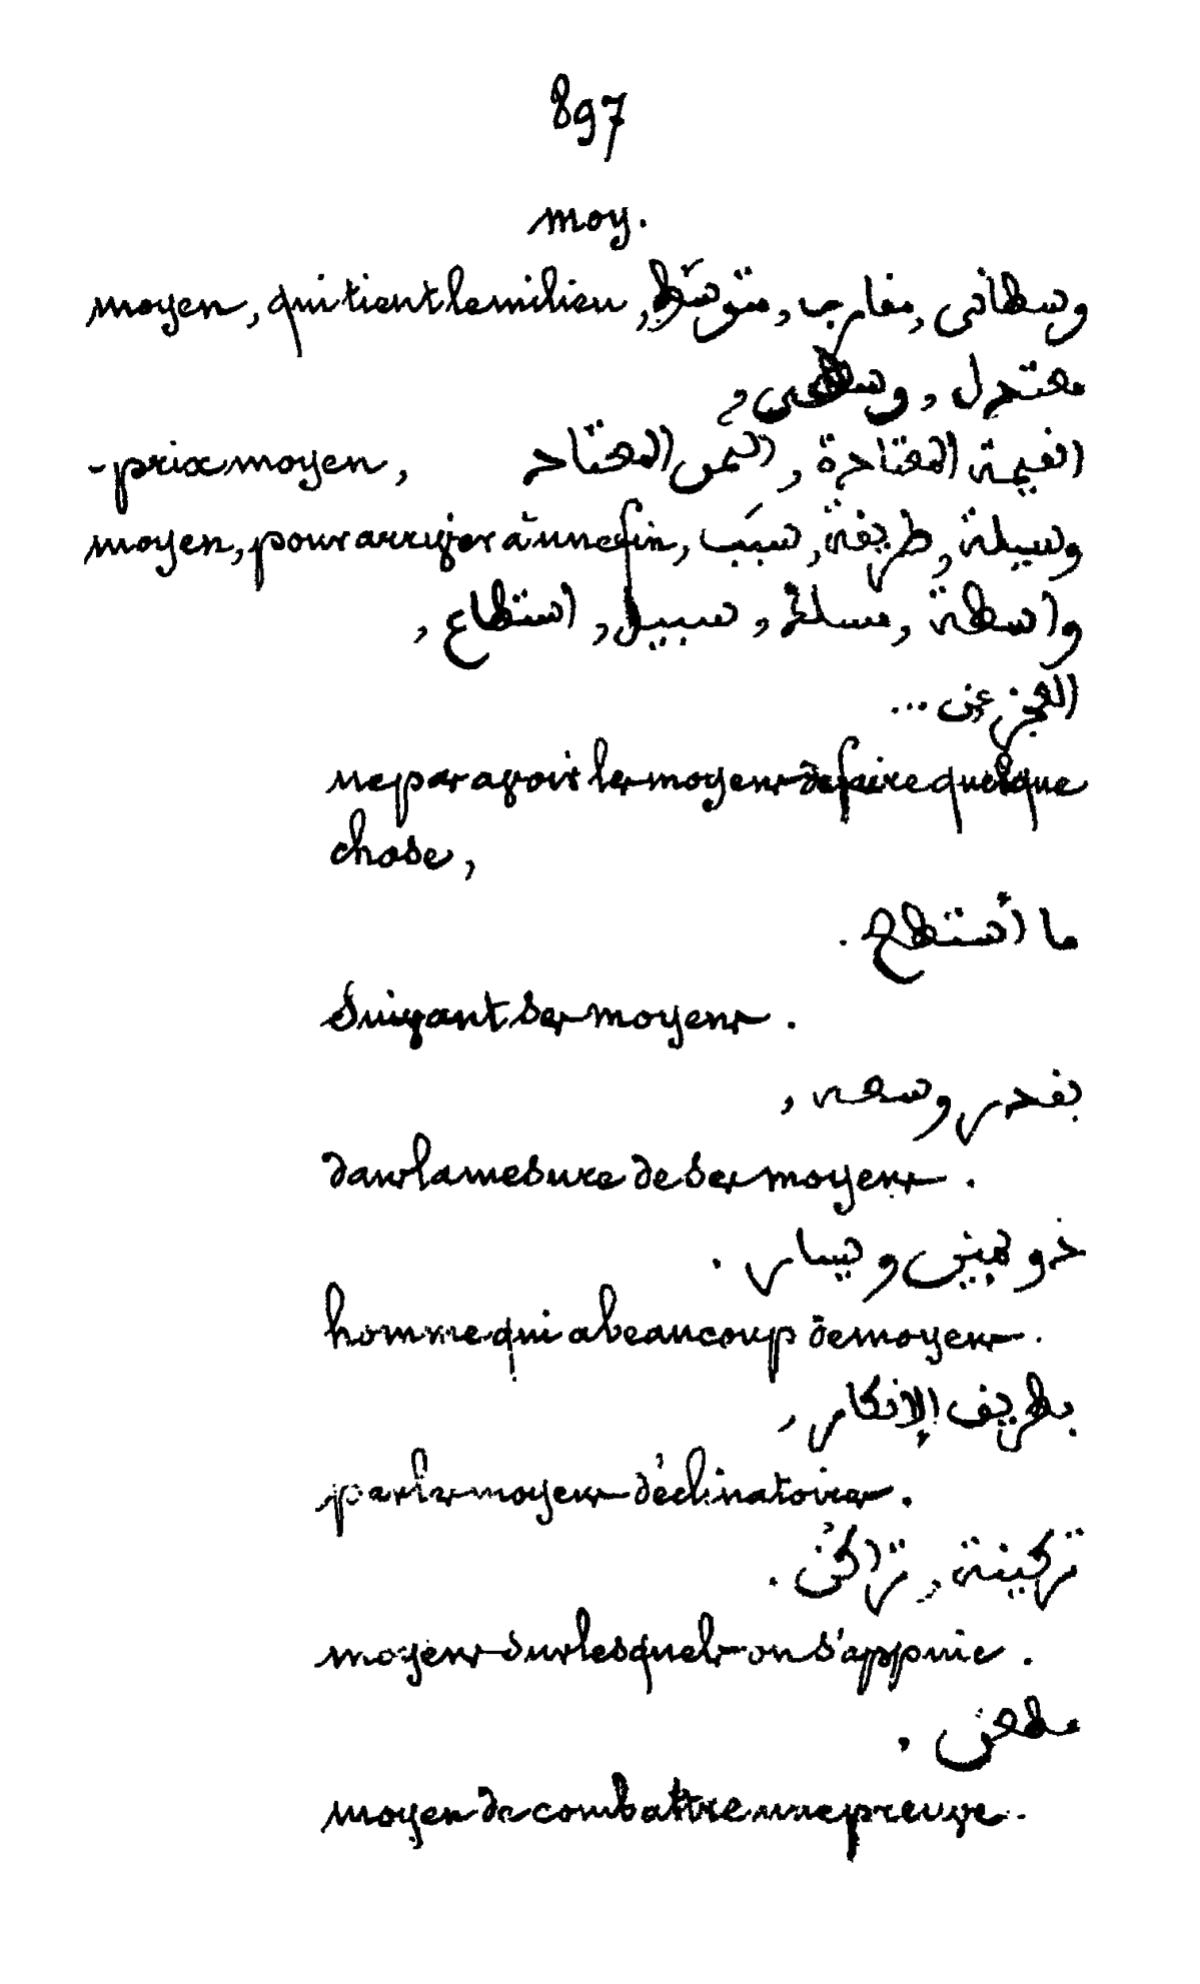 897
moy.
moyen, qui tient le milieu, وسطاني, مقارب, متوسّط,
معتدل, وسطى,
- prix moyen, القيمة المعتادة, الثمن المعتاد
moyen, pour arriver à une fin, وسيلة, طريقة, سبَب,
واسطة, مسلك, سبيل, استطاع,
العجز عن ...
ne pas avoir les moyens de faire quelque
chose,
ما أستطع.
suivant ses moyens.
بقدر وسعه,
dans la mesure de ses moyens.
ذو ويسار.
homme qui a beaucoup de moyens.
بطريق الإنكار,
par les moyens déclinatoires.
تركينة, تراكن.
moyens sur lesquels on s'appuie.
مطعن,
moyen de combattre une preuve.